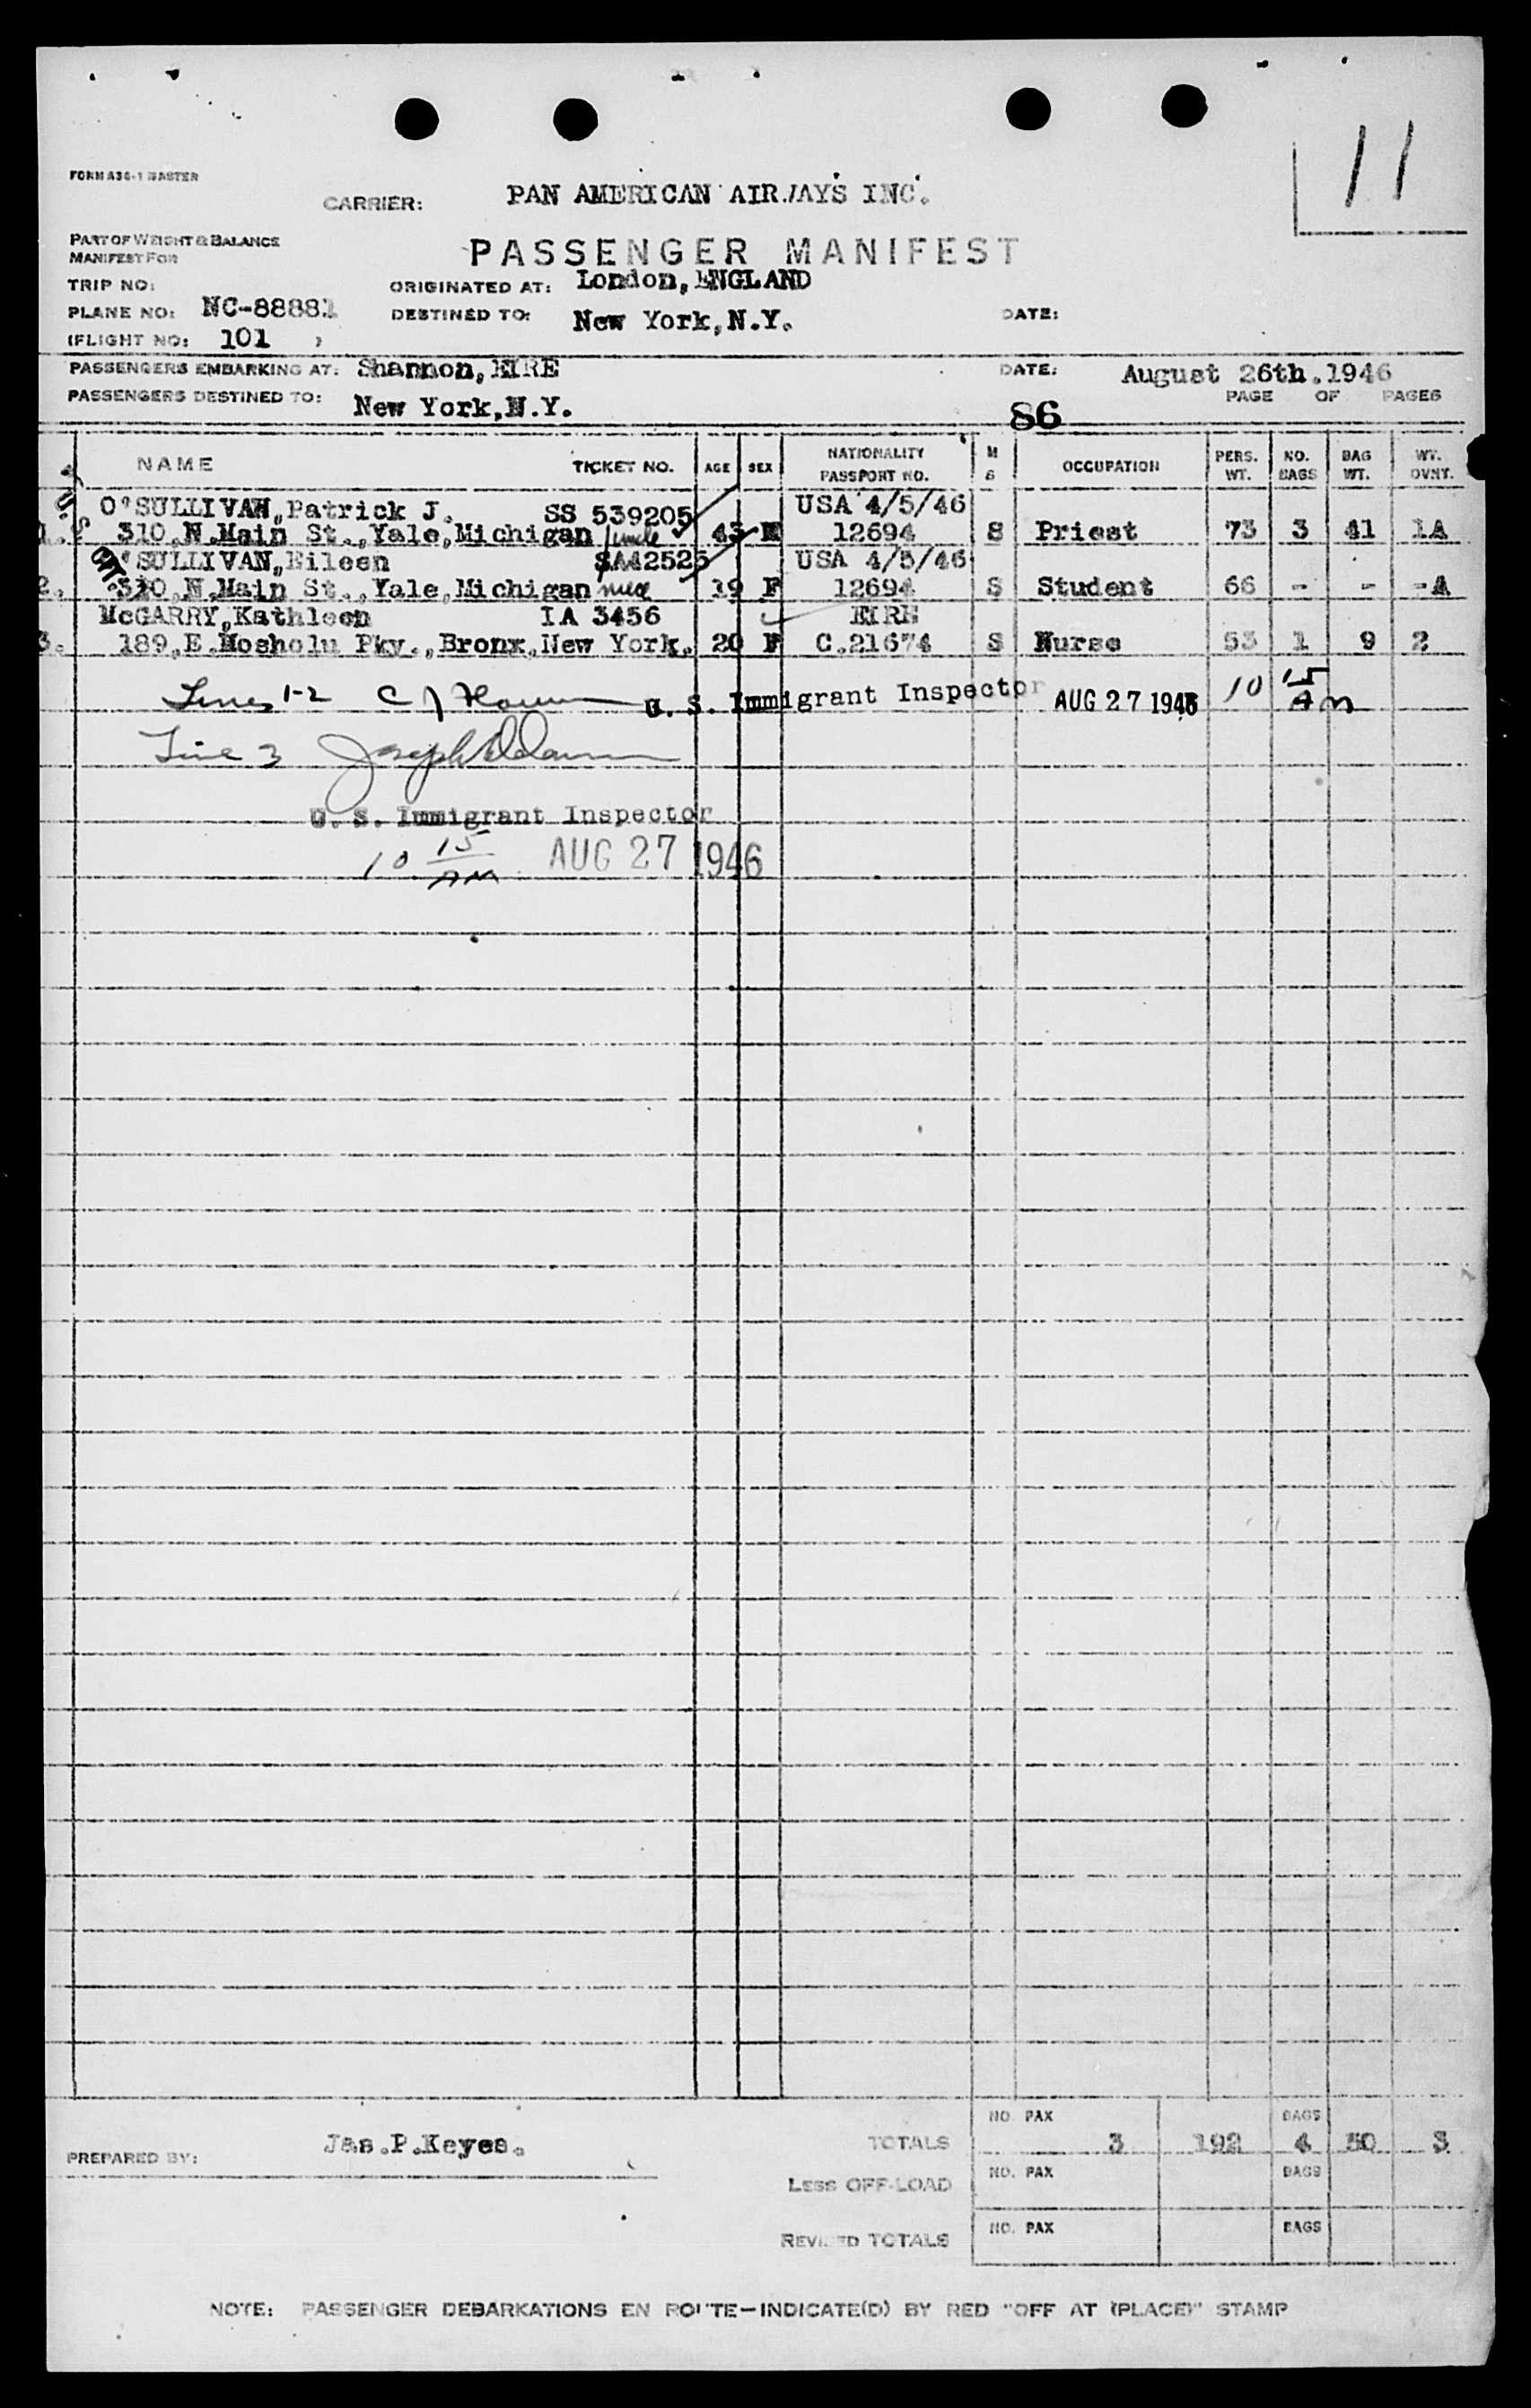 11
FORM A36-1 MASTER
CARRIER: PAN AMERICAN AIRWAYS INC.
PART OF WEIGHT & BALANCE
MANIFEST FOR
PASSENGER MANIFEST
TRIP NO: ORIGINATED AT: London, ENGLAND
PLANE NO: NC-88881 DESTINED TO: New York, N.Y. DATE:
(FLIGHT NO: 101 )
PASSENGERS EMBARKING AT: Shannon, EIRE DATE: August 26th.1946
PASSENGERS DESTINED TO: New York, N.Y. 86 PAGE OF PAGES
NAME TICKET NO. AGE SEX NATIONALITY PASSPORT NO. M S OCCUPATION PERS. WT. NO. BAGS BAG WT. WT. OVNT.
O'SULLIVAN, Patrick J. SS 539205 USA 4/5/46
1. 310, N. Main St., Yale, Michigan uncle 43 M 12694 S Priest 73 3 41 1A
O'SULLIVAN, Eileen SA42525 USA 4/5/46
2. 310, N. Main St., Yale, Michigan niece 19 F 12694 S Student 66 - - -A
McGARRY, Kathleen IA 3456 EIRE
3. 189, E. Mosholu Pky., Bronx, New York. 20 F C.21674 S Nurse 53 1 9 2
Lines 1-2 C J U. S. Immigrant Inspector AUG 27 1946 10 15 AM
Line 3 Joseph
U. S. Immigrant Inspector
10 15 AM AUG 27 1946
PREPARED BY: Jas. P. Keyes.
TOTALS NO. PAX 3 192 BAGS 4 50 3
LESS OFF-LOAD NO. PAX BAGS
REVISED TOTALS NO. PAX BAGS
NOTE: PASSENGER DEBARKATIONS EN ROUTE—INDICATE(D) BY RED "OFF AT (PLACE)" STAMP